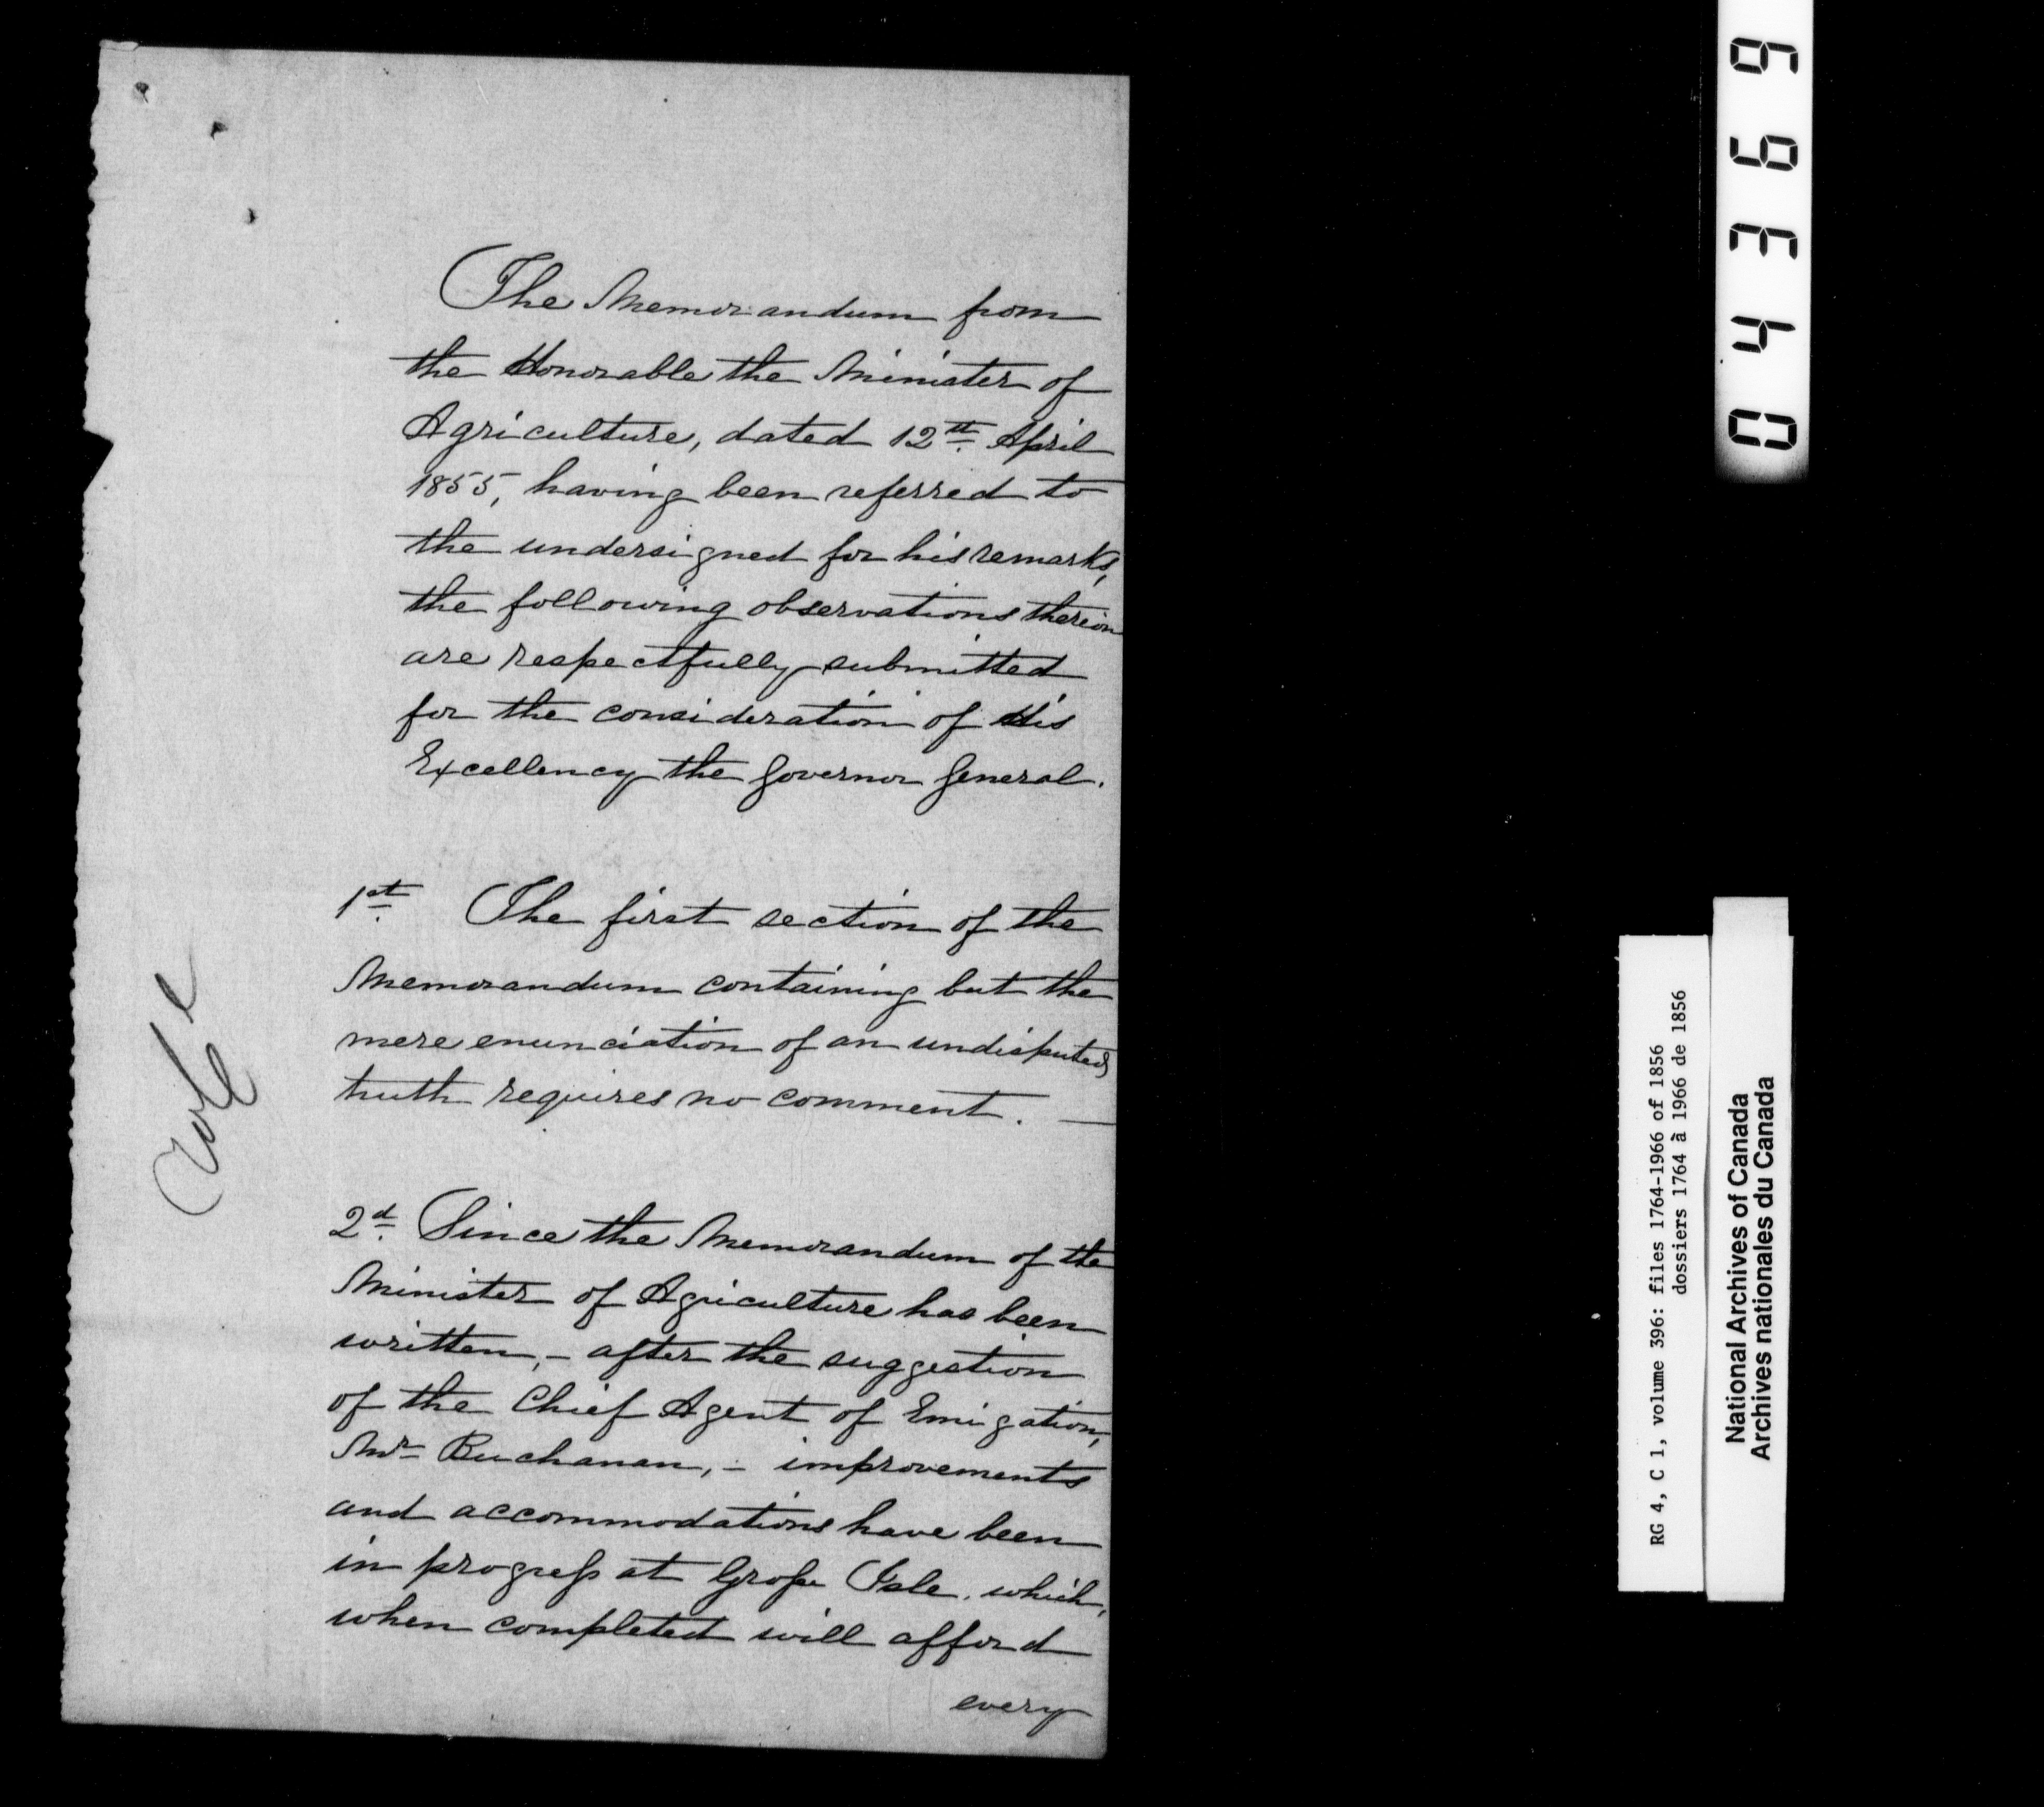 The Memorandum from
the Honorable the Minister of
Agriculture, dated 12th April
1855, having been referred to
the undersigned for his remarks,
the following observations thereon
are respectfully submitted
for the consideration of His
Excellency the Governor General.
1st The first section of the
Memorandum containing but the
mere enunciation of an undisputed
truth requires no comment. —
2d Since the Memorandum of the
Minister of Agriculture has been
written, - after the suggestion
of the Chief Agent of Emigation,
Mr Buchanan, - improvements
and accommodations have been
in progress at Grosse Isle, which,
when completed will afford
every
04369
RG 4, C 1, volume 396: files 1764-1966 of 1856
dossiers 1764 à 1966 de 1856
National Archives of Canada
Archives nationales du Canada